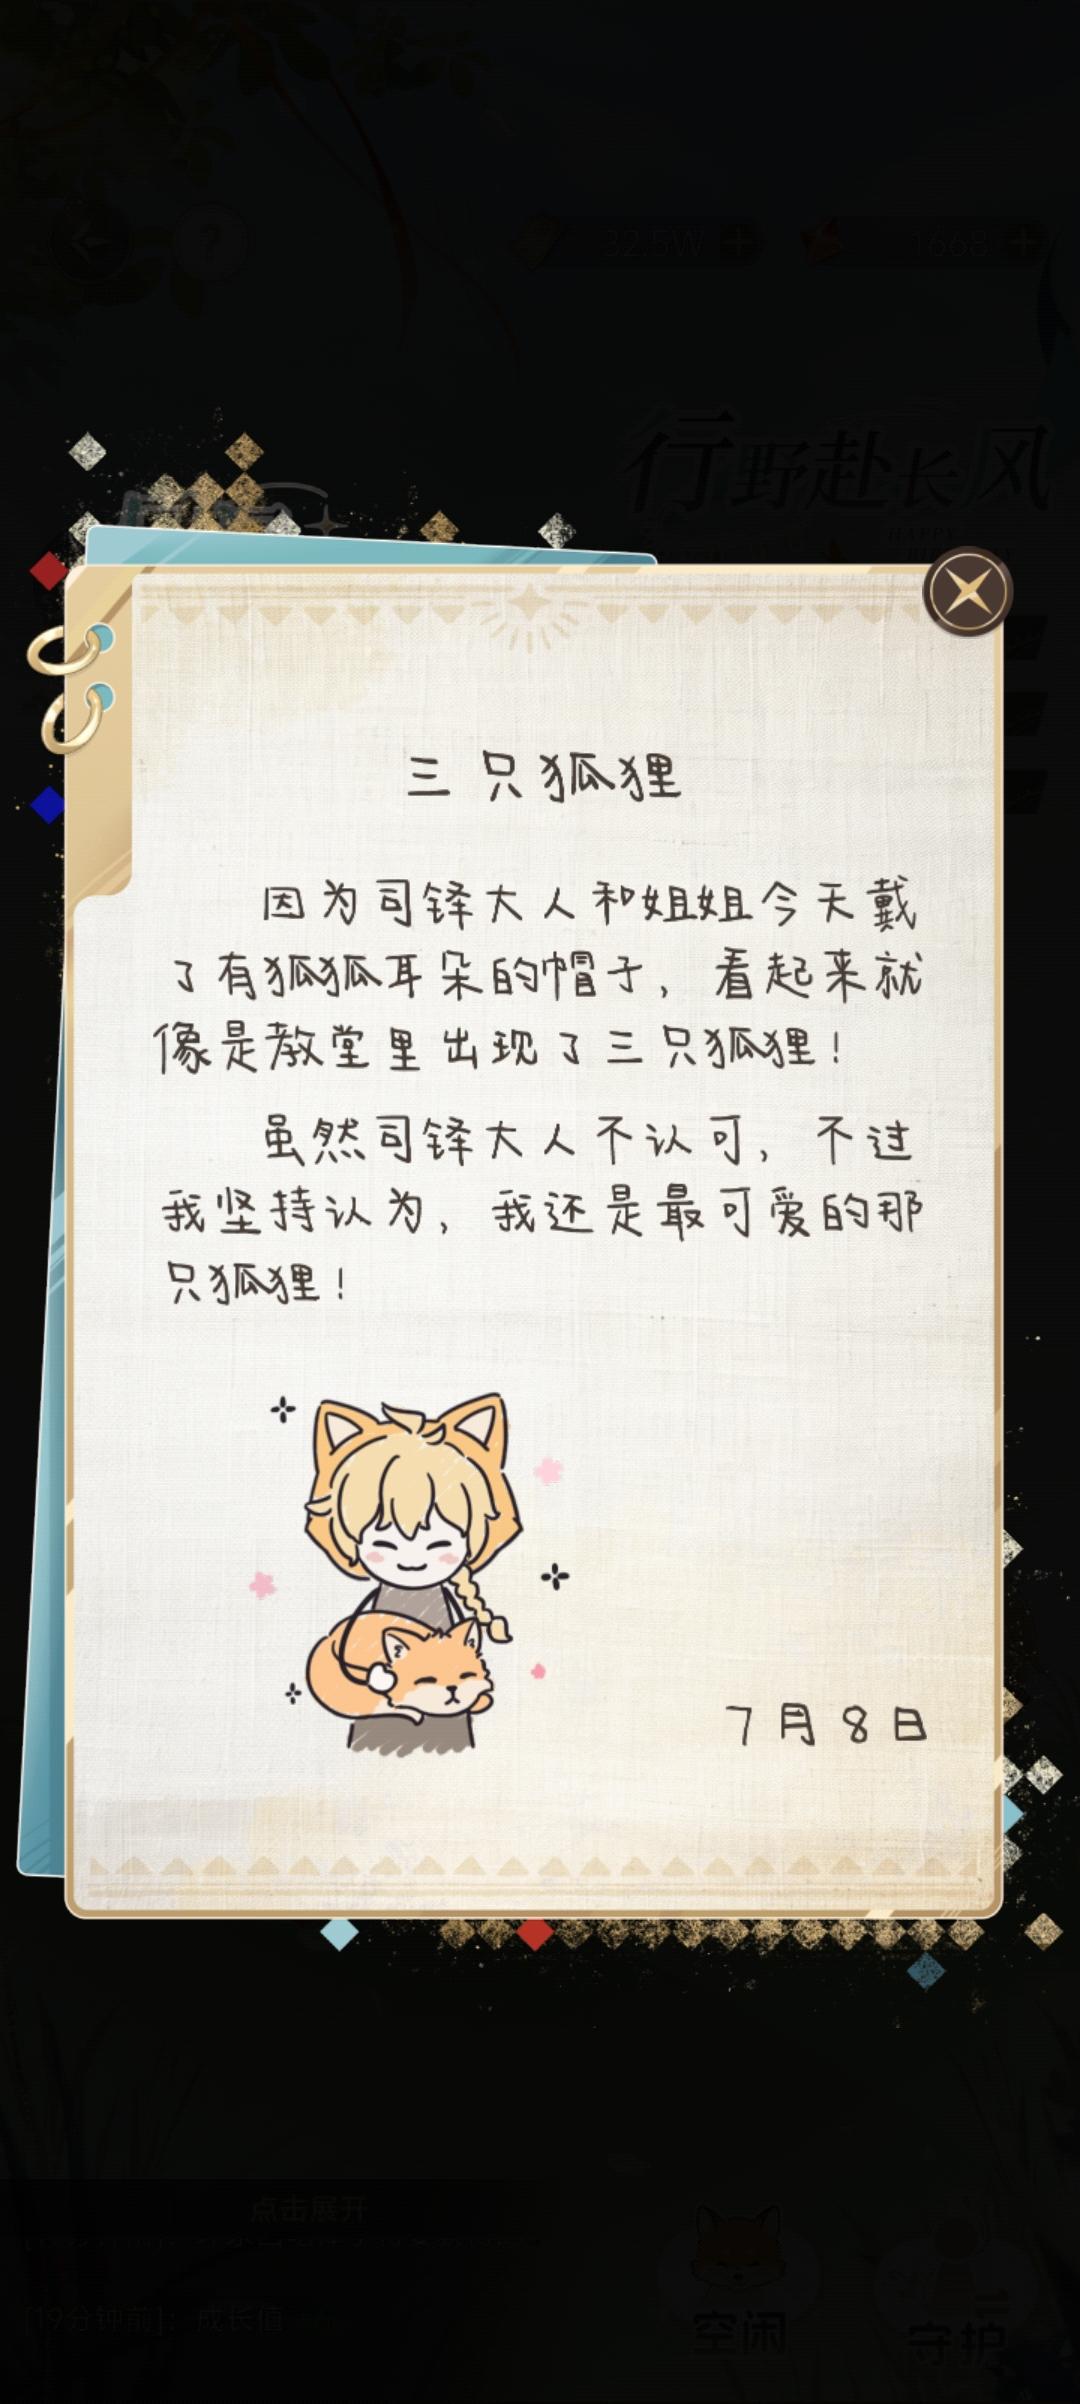 32.5W
1668
行野赴长风
HAPPY
三只狐狸
因为司铎大人和姐姐今天戴
了有狐狐耳朵的帽子，看起来就
像是教堂里出现了三只狐狸！
虽然司铎大人不认可，不过
我坚持认为，我还是最可爱的那
只狐狸！
7月8日
点击展开
[19分钟前]：成长值
空闲
守护